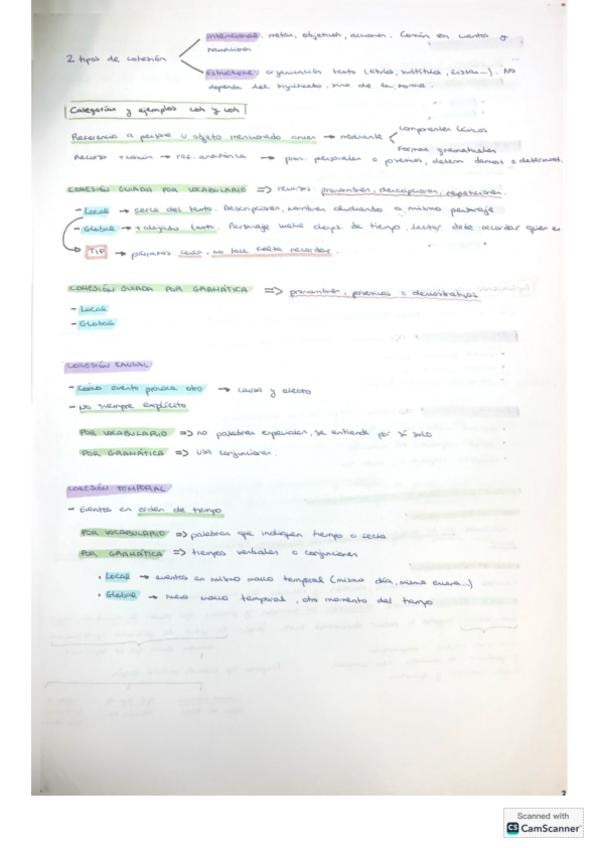 2 tipos de cohesión
Intencional: metas, objetivos, acciones. Común en cuentos y
narrativas
Estructural: organización texto (títulos, subtítulos, listas...). No
depende del significado, sino de la forma.
Categorías y ejemplos coh y coh
Referencia a persona u objeto mencionado antes → mediante
componentes léxicos
formas gramaticales
Recurso + común → ref. anafórica → pron. personales o posesivos, determ.
COHESIÓN GUIADA POR VOCABULARIO => recursos: pronombres, descripciones, repeticiones.
- Local → cerca del texto. Descripciones, nombres aludiendo a mismo personaje
- Global → + alejado texto. Personaje vuelve desp. de tiempo, lector debe recordar quien es
TIP → párrafos, no hace falta recordar.
COHESIÓN GUIADA POR GRAMÁTICA => pronombres, posesivos o demostrativos
- Local
- Global
COHESIÓN CAUSAL
- Cómo evento provoca otro → causa y efecto
- No siempre explícito
POR VOCABULARIO => no palabras especiales, se entiende por sí solo
POR GRAMÁTICA => usa conjunciones.
COHESIÓN TEMPORAL
- Eventos en orden de tiempo
POR VOCABULARIO => palabras que indiquen tiempo o fecha
POR GRAMÁTICA => tiempos verbales o conjunciones
• Local → eventos en mismo marco temporal (mismo día, misma escena...)
• Global → nuevo marco temporal, otro momento del tiempo
2
Scanned with
CS CamScanner